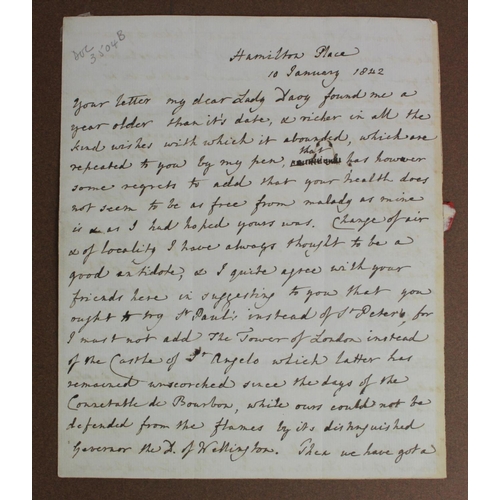 DOC
3504B
Hamilton Place
10 January 1842
Your letter my dear Lady Davy found me a
year older than it's date, & richer in all the
kind wishes with which it abounded, which are
repeated to you by my pen, that has however
some regrets to add that your health does
not seem to be as free from malady as mine
is & as I had hoped yours was. Change of air
& of locality I have always thought to be a
good antidote, & I quite agree with your
friends here in suggesting to you that you
ought to try St Paul's instead of St Peter's, for
I must not add The Tower of London instead
of the Castle of St Angelo which latter has
remained unscorched since the days of the
Connetable de Bourbon, while ours could not be
defended from the flames by its distinguished
Governor the D. of Wellington. Then we have got a